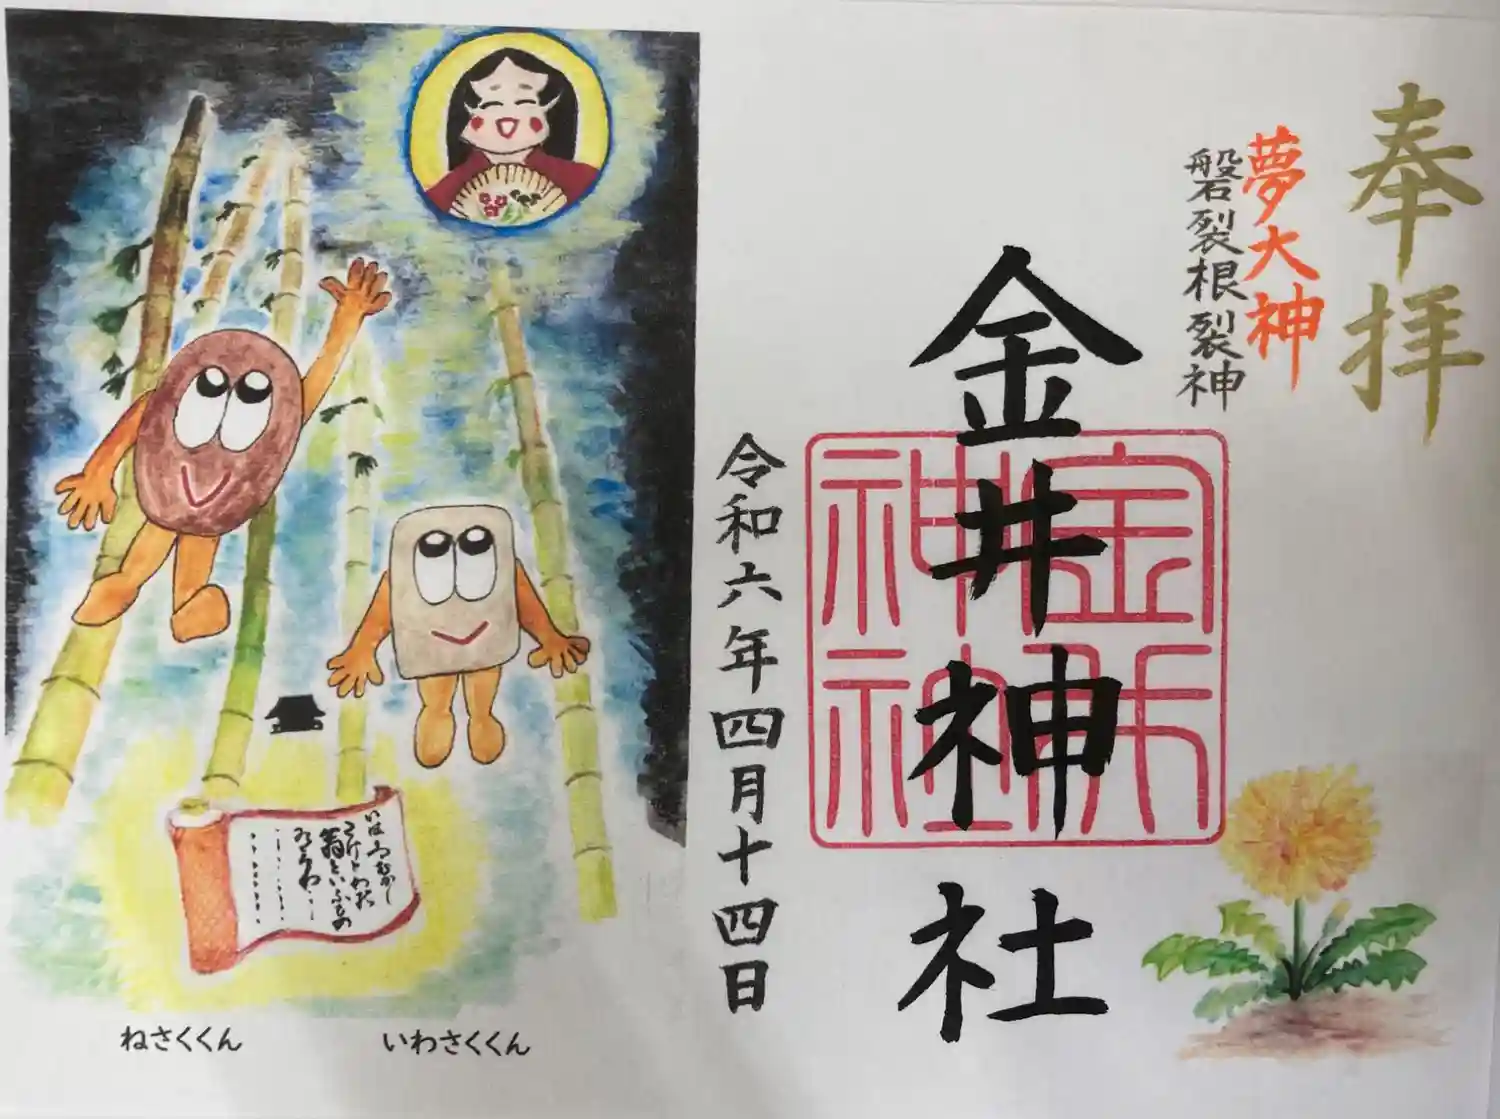 奉拝
夢大神
磐裂根裂神
金井神社
金井神社
令和六年四月十四日
いまはむかし
たけとりの
翁といふもの
ありけり
ねさくくん
いわさくくん